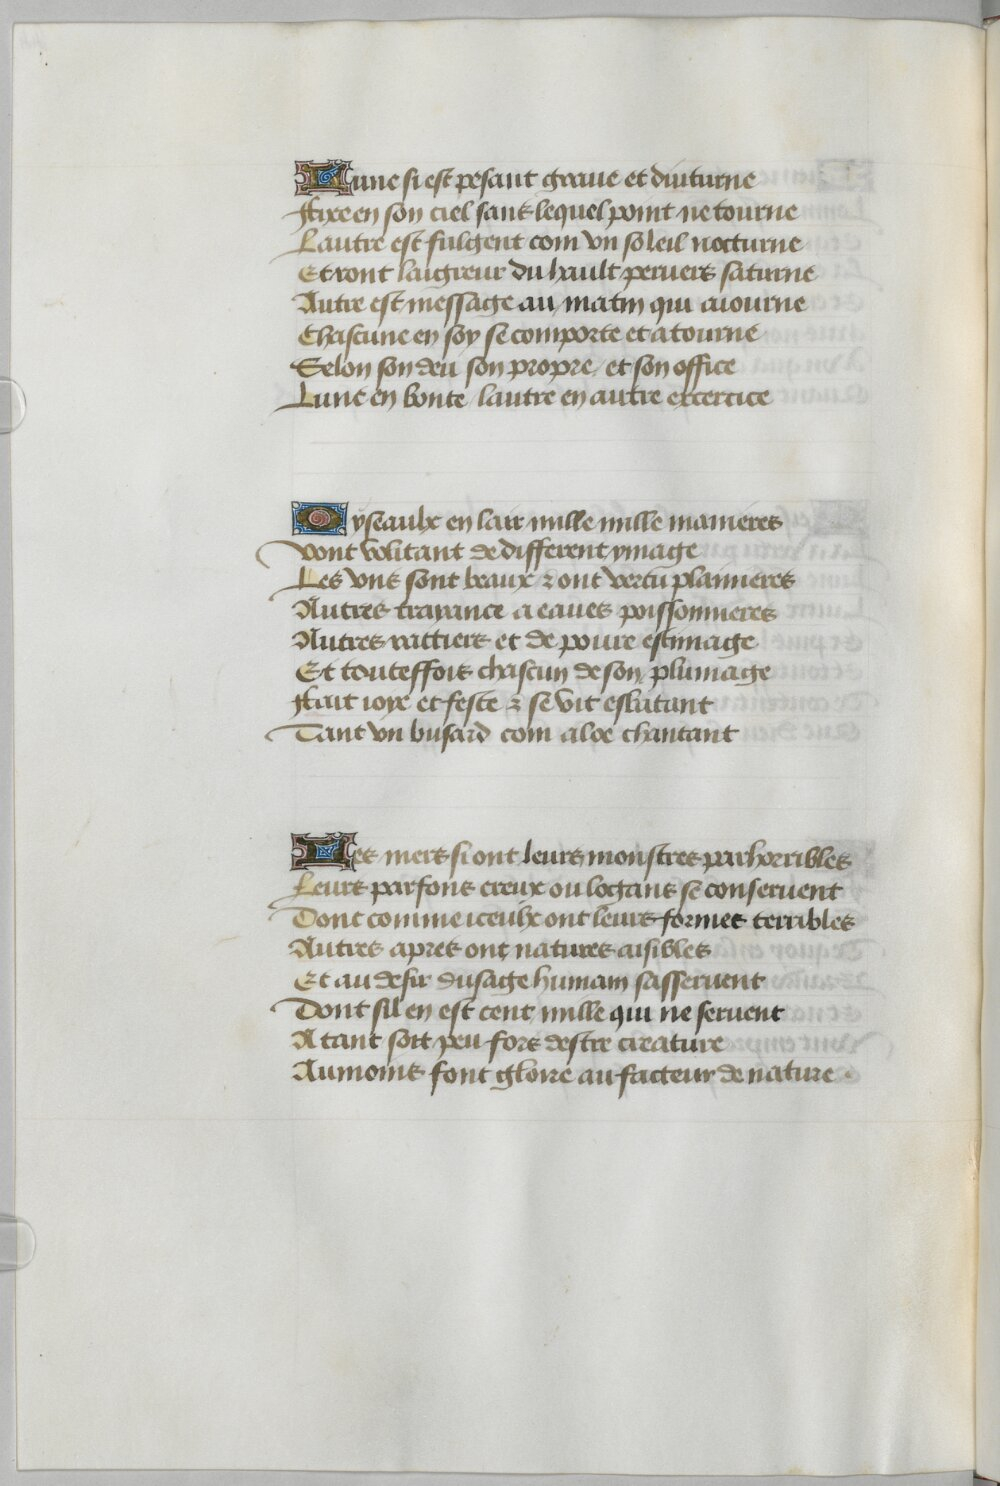 Lune si est pesant graue et diuturne
Fixe en son ciel sans lequel point ne tourne
Lautre est fulgent com vn soleil nocturne
Et ront laigreur du hault peruers saturne
Autre est message au matin qui aiourne
Chascune en soy se comporte et atourne
Selon son deu son propre / et son office
Lune en bonte / lautre en autre excercice
Oyseaulx en lair mille mille manieres
Vont volitant de different ymage
Les vns sont beaux & ont vertu plainieres
Autres trayance a eaues poissonnieres
Autres rattiers et de poure estimage
Et touteffois chascun de son plumage
Fait ioye et feste & se vit eslatant
Tant vn busard com aloe chantant
Les mers si ont leurs monstres parhorribles
Leurs parfons creux ou logans se conseruent
Dont comme iceulx ont leurs formes terribles
Autres apres ont natures aisibles
Et au desir dusage humain sasseruent
Dont sil en est cent mille qui ne seruent
A tant soit peu fors destre creature
Aumoins font gloire au facteur de nature .